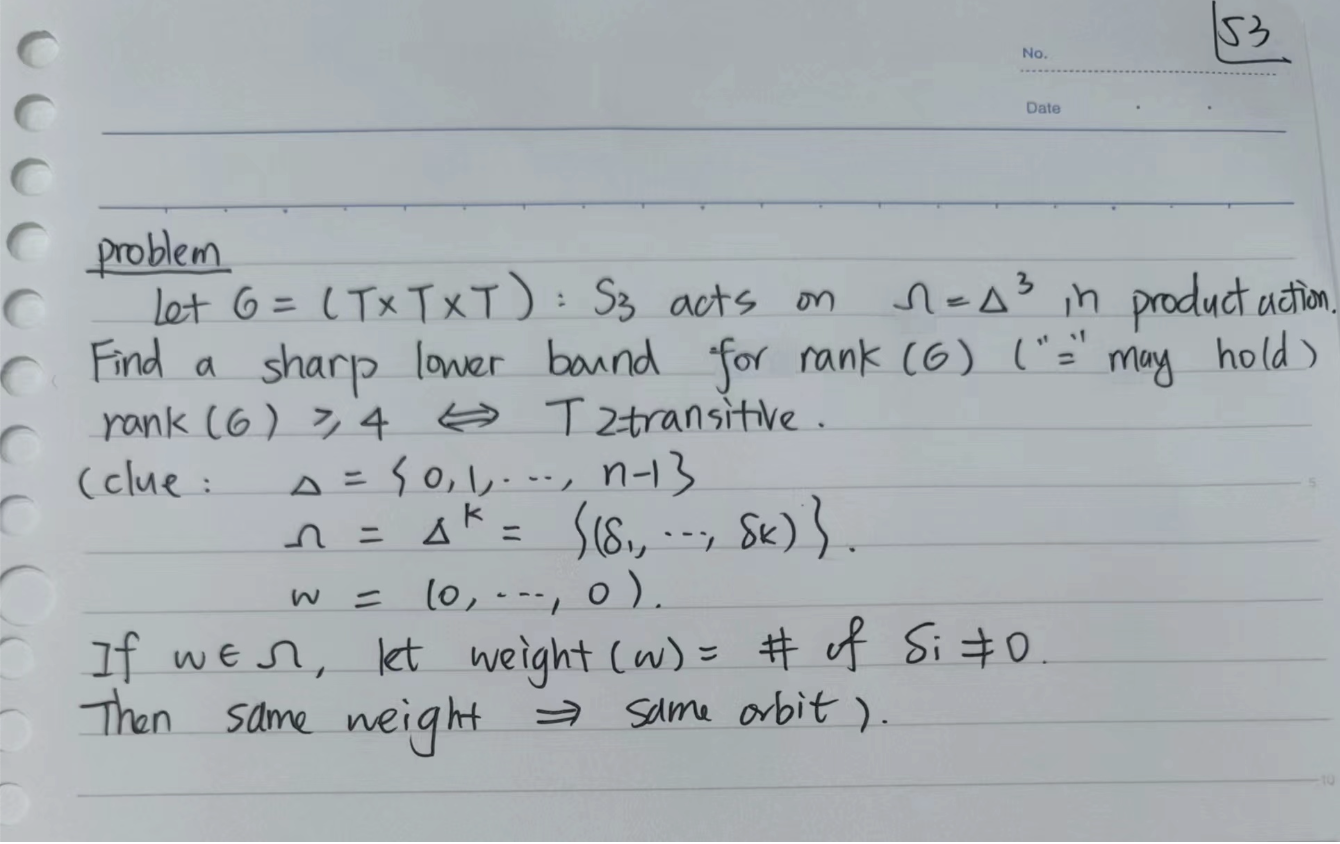 53
No.
Date
problem
Let G = (T×T×T) : S3 acts on Ω = Δ³ in product action.
Find a sharp lower bound for rank (G) ("=" may hold)
rank (G) ≥ 4 ⇔ T 2-transitive.
(clue : Δ = {0, 1, ..., n-1}
Ω = Δᴷ = {(δ₁, ..., δk)}.
w = (0, ..., 0).
If w ∈ Ω, let weight (w) = # of δi ≠ 0.
Then same weight ⇒ same orbit).
5
10